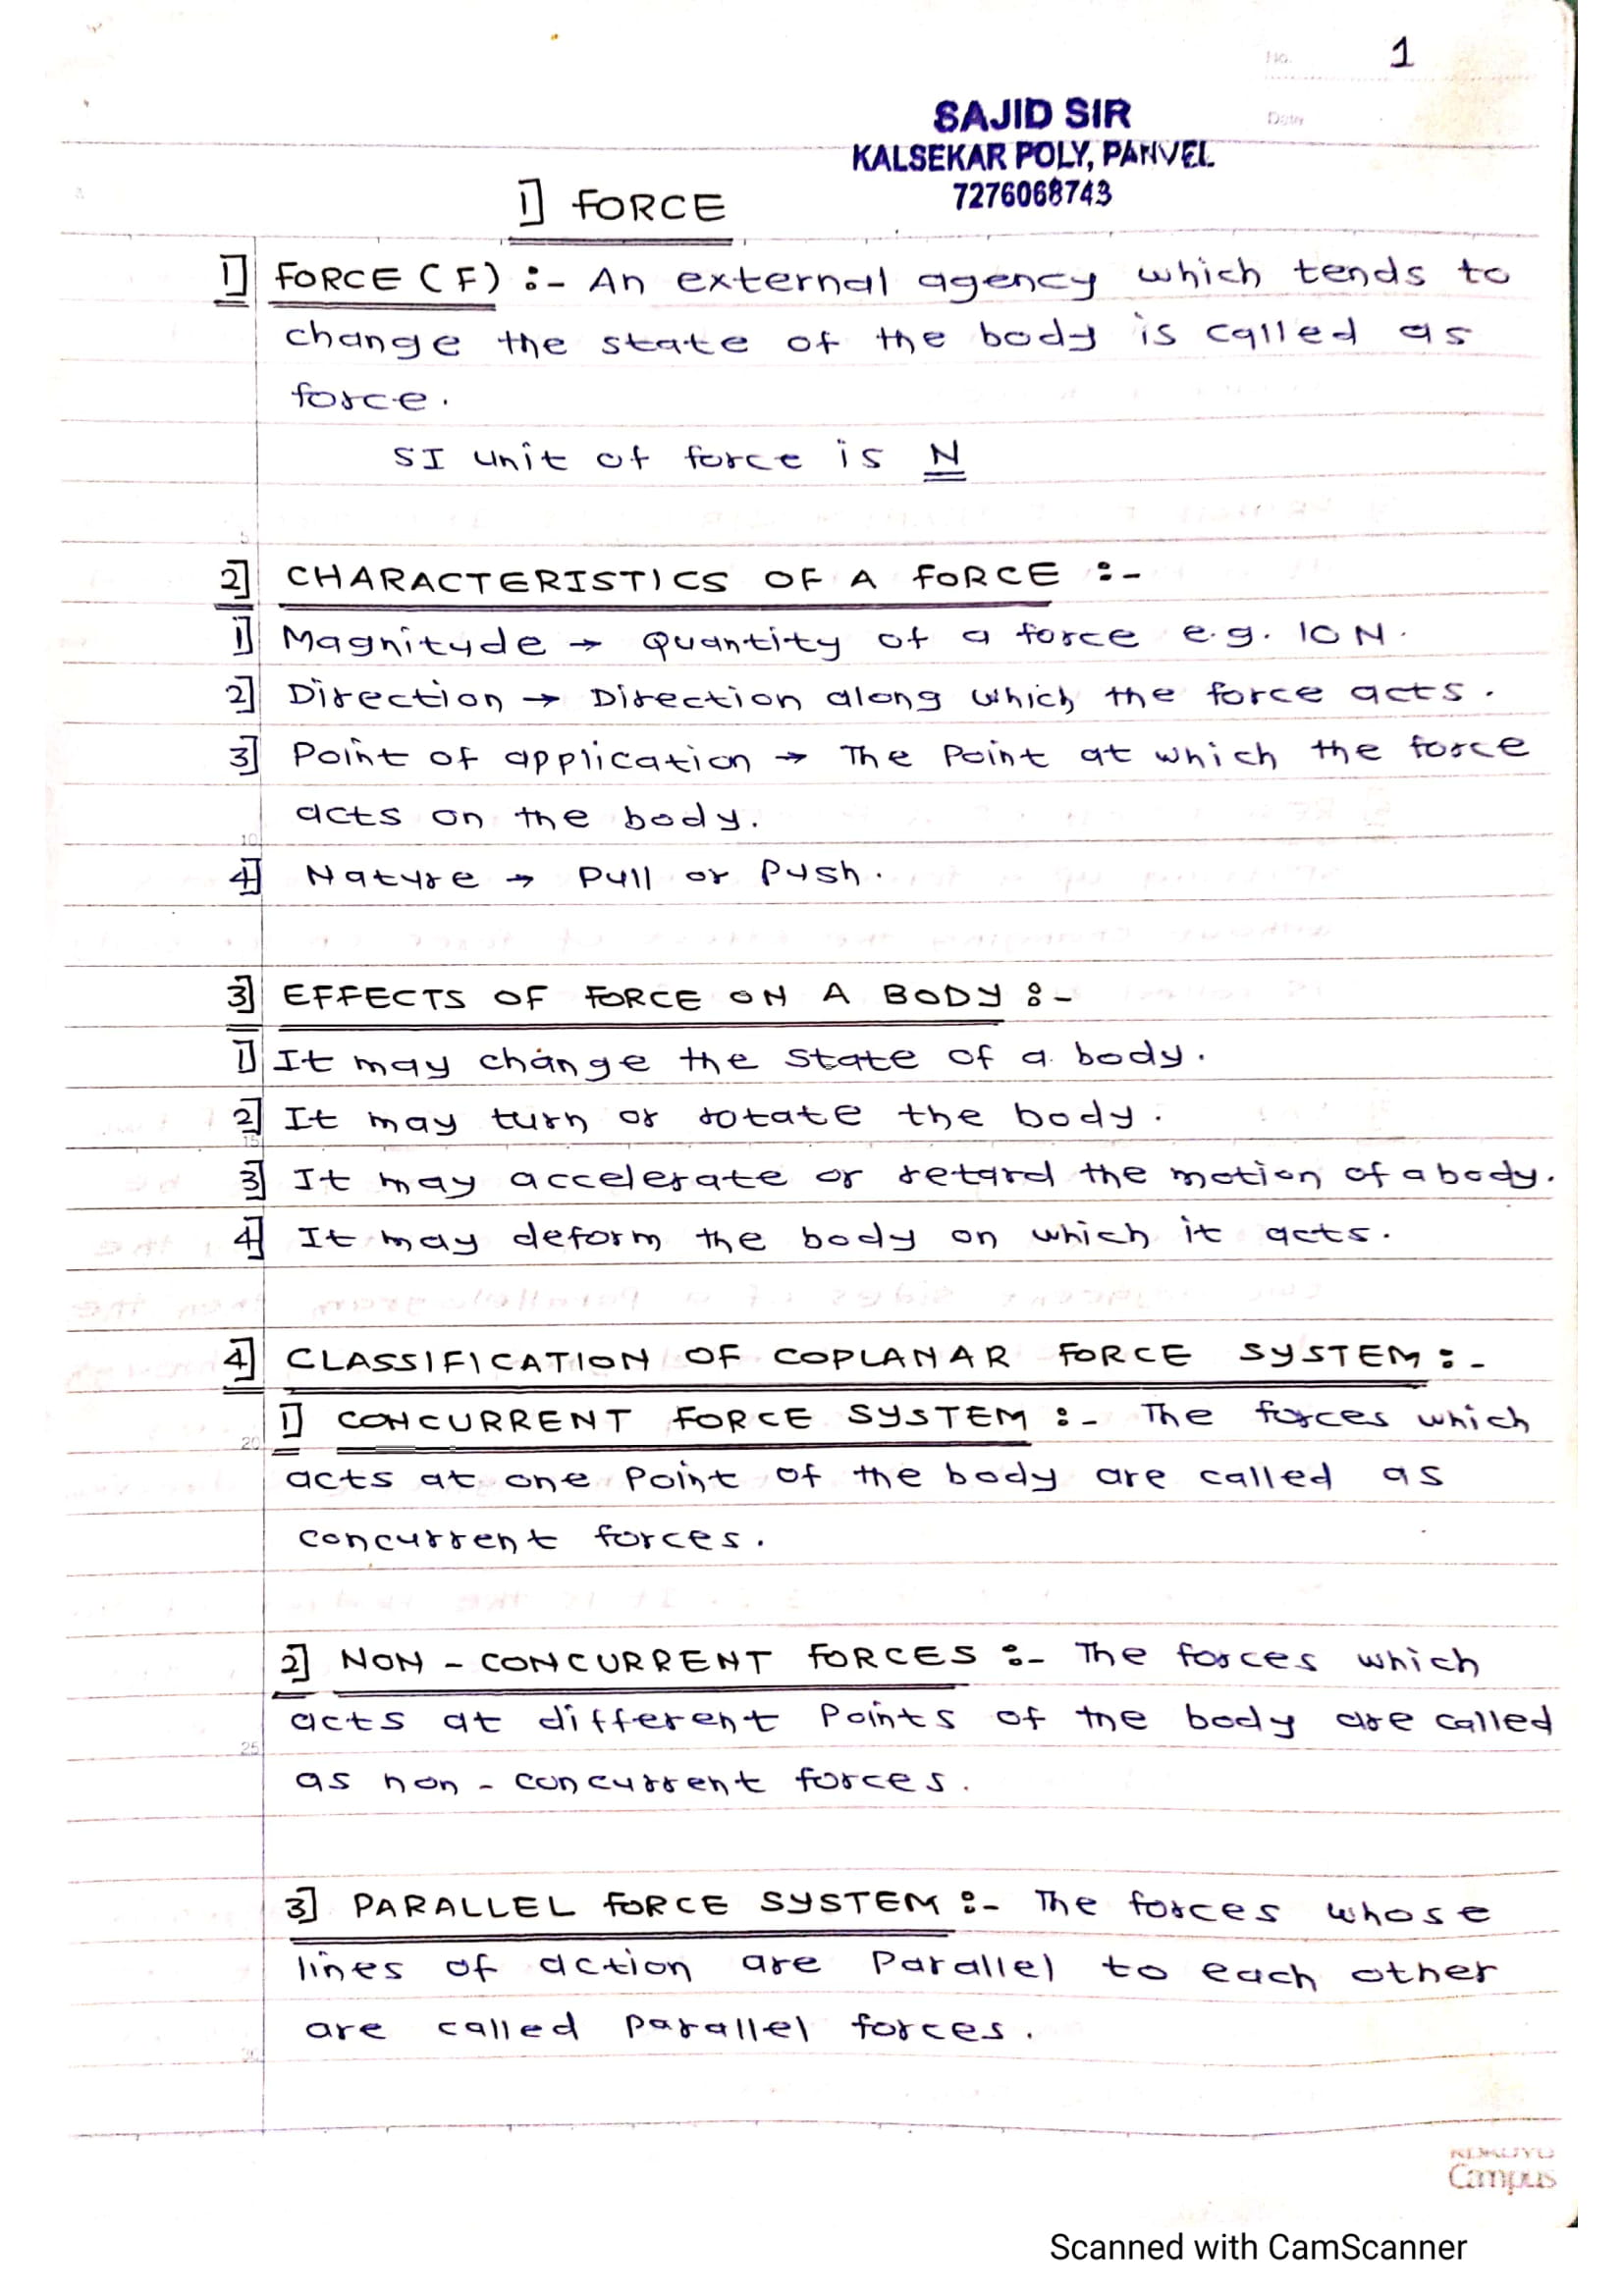 No.
1
SAJID SIR
Date
KALSEKAR POLY, PANVEL
7276068743
1] FORCE
1] FORCE (F) :- An external agency which tends to
change the state of the body is called as
force.
SI unit of force is N
5
2] CHARACTERISTICS OF A FORCE :-
1] Magnitude → Quantity of a force e.g. 10 N.
2] Direction → Direction along which the force acts.
3] Point of application → The Point at which the force
acts on the body.
10
4] Nature → Pull or Push.
3] EFFECTS OF FORCE ON A BODY :-
1] It may change the state of a body.
2] It may turn or rotate the body.
15
3] It may accelerate or retard the motion of a body.
4] It may deform the body on which it acts.
4] CLASSIFICATION OF COPLANAR FORCE SYSTEM :-
1] CONCURRENT FORCE SYSTEM :- The forces which
20
acts at one Point of the body are called as
concurrent forces.
2] NON - CONCURRENT FORCES :- The forces which
acts at different Points of the body are called
25
as non - concurrent forces.
3] PARALLEL FORCE SYSTEM :- The forces whose
lines of action are Parallel to each other
are called Parallel forces.
KOKUYO
Campus
Scanned with CamScanner